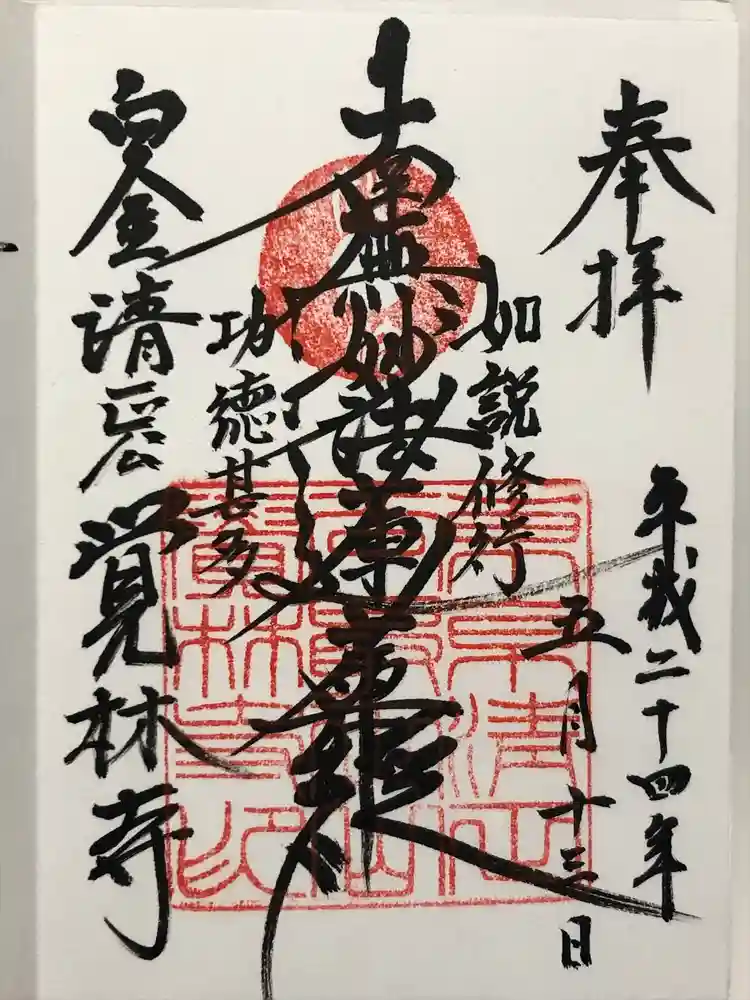 奉拝
平成二十四年
五月十三日
如説修行
南無妙法蓮華経
功徳甚多
白金清正公覚林寺